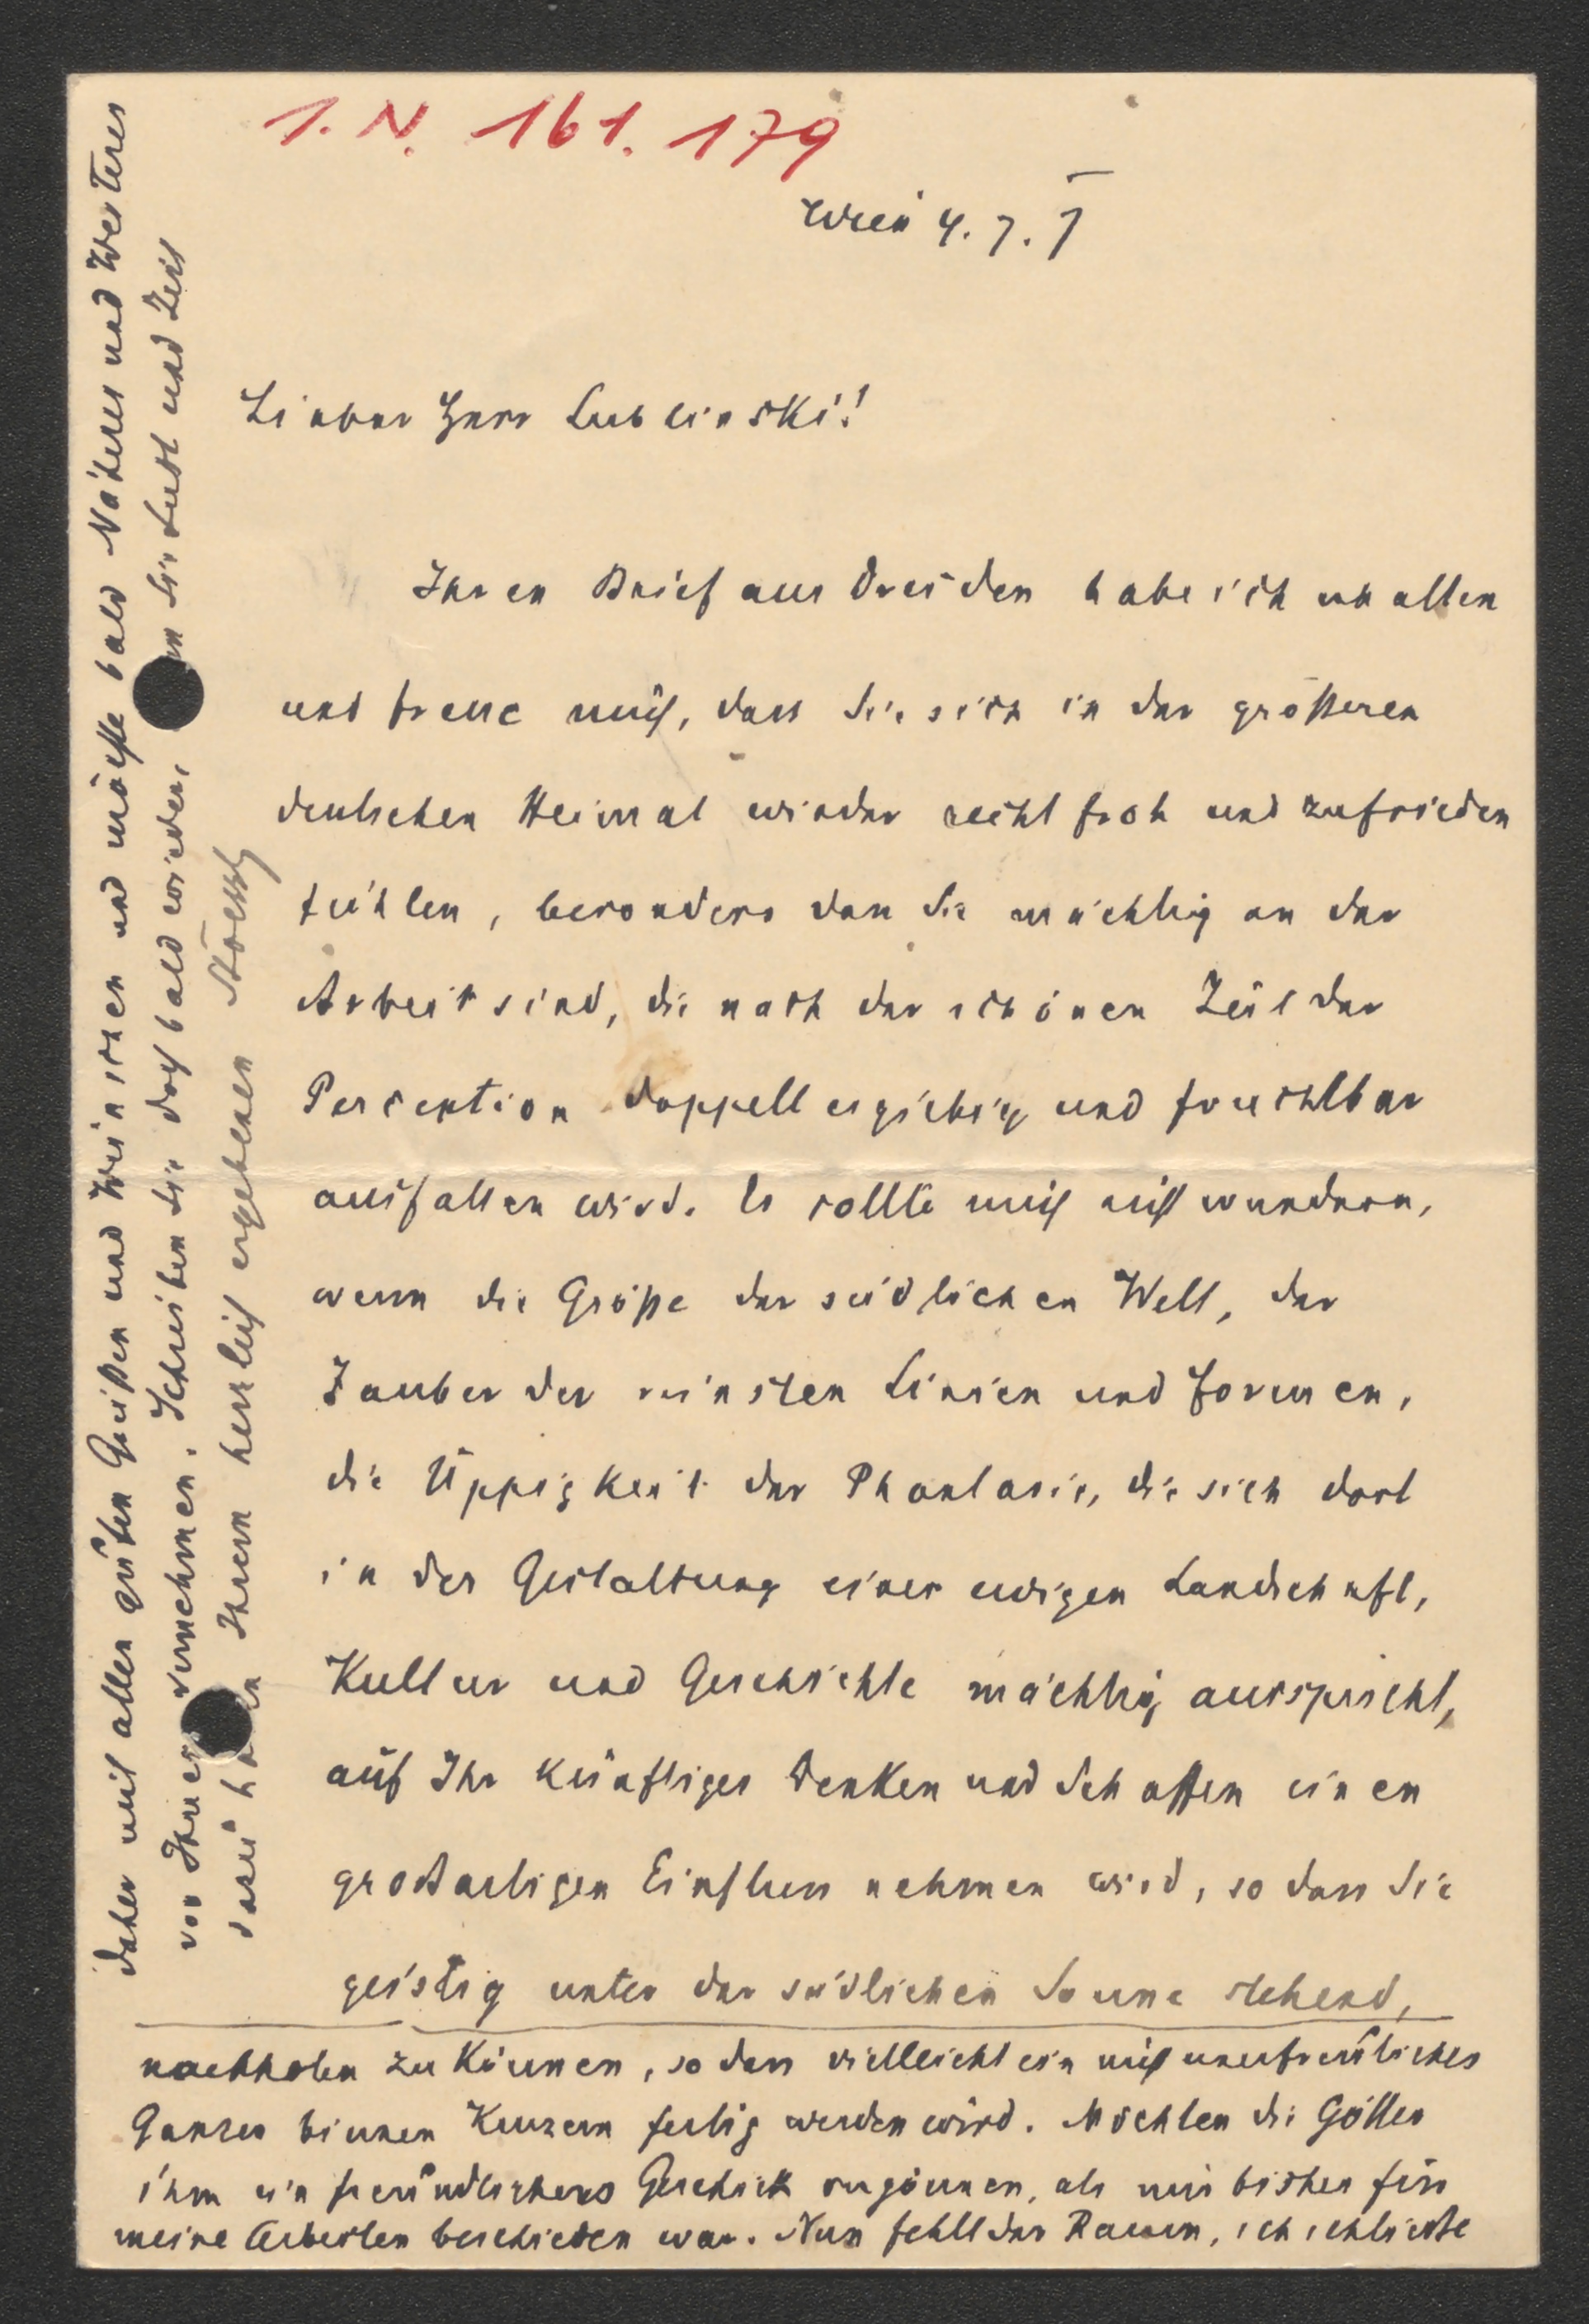 I. N. 161.179
Wien 4. 7. 7
Lieber Herr Lublinski!
Ihren Brief aus Dresden habe ich erhalten
und freue mich, dass Sie sich in der größeren
deutschen Heimat wieder recht froh und zufrieden
fühlen, besonders dass Sie mächtig an der
Arbeit sind, die nach der schönen Zeit der
Perception doppelt ergiebig und fruchtbar
ausfallen wird. Es sollte mich nicht wundern,
wenn die Größe der südlichen Welt, der
Zauber der reinsten Linien und Formen,
die Üppigkeit der Phantasie, die sich dort
in der Gestaltung einer ewigen Landschaft,
Kultur und Geschichte mächtig ausspricht,
auf Ihr künftiges Denken und Schaffen einen
großartigen Einfluss nehmen wird, so dass Sie
geistig unter der südlichen Sonne stehend,
nachholen zu können, so dass vielleicht ein nicht unerfreuliches
Ganzes binnen Kurzem fertig werden wird. Möchten die Götter
ihm ein freundlicheres Geschick vergönnen, als mir bisher für
meine Arbeiten beschieden war. Nun fehlt der Raum, ich schließe
daher mit allen guten Grüßen und Wünschen und möchte bald Näheres und Weiteres
von Ihnen vernehmen. Schreiben Sie doch bald wieder, Sie Lust und Zeit
Ihrem herzlich ergebenen Stoessl